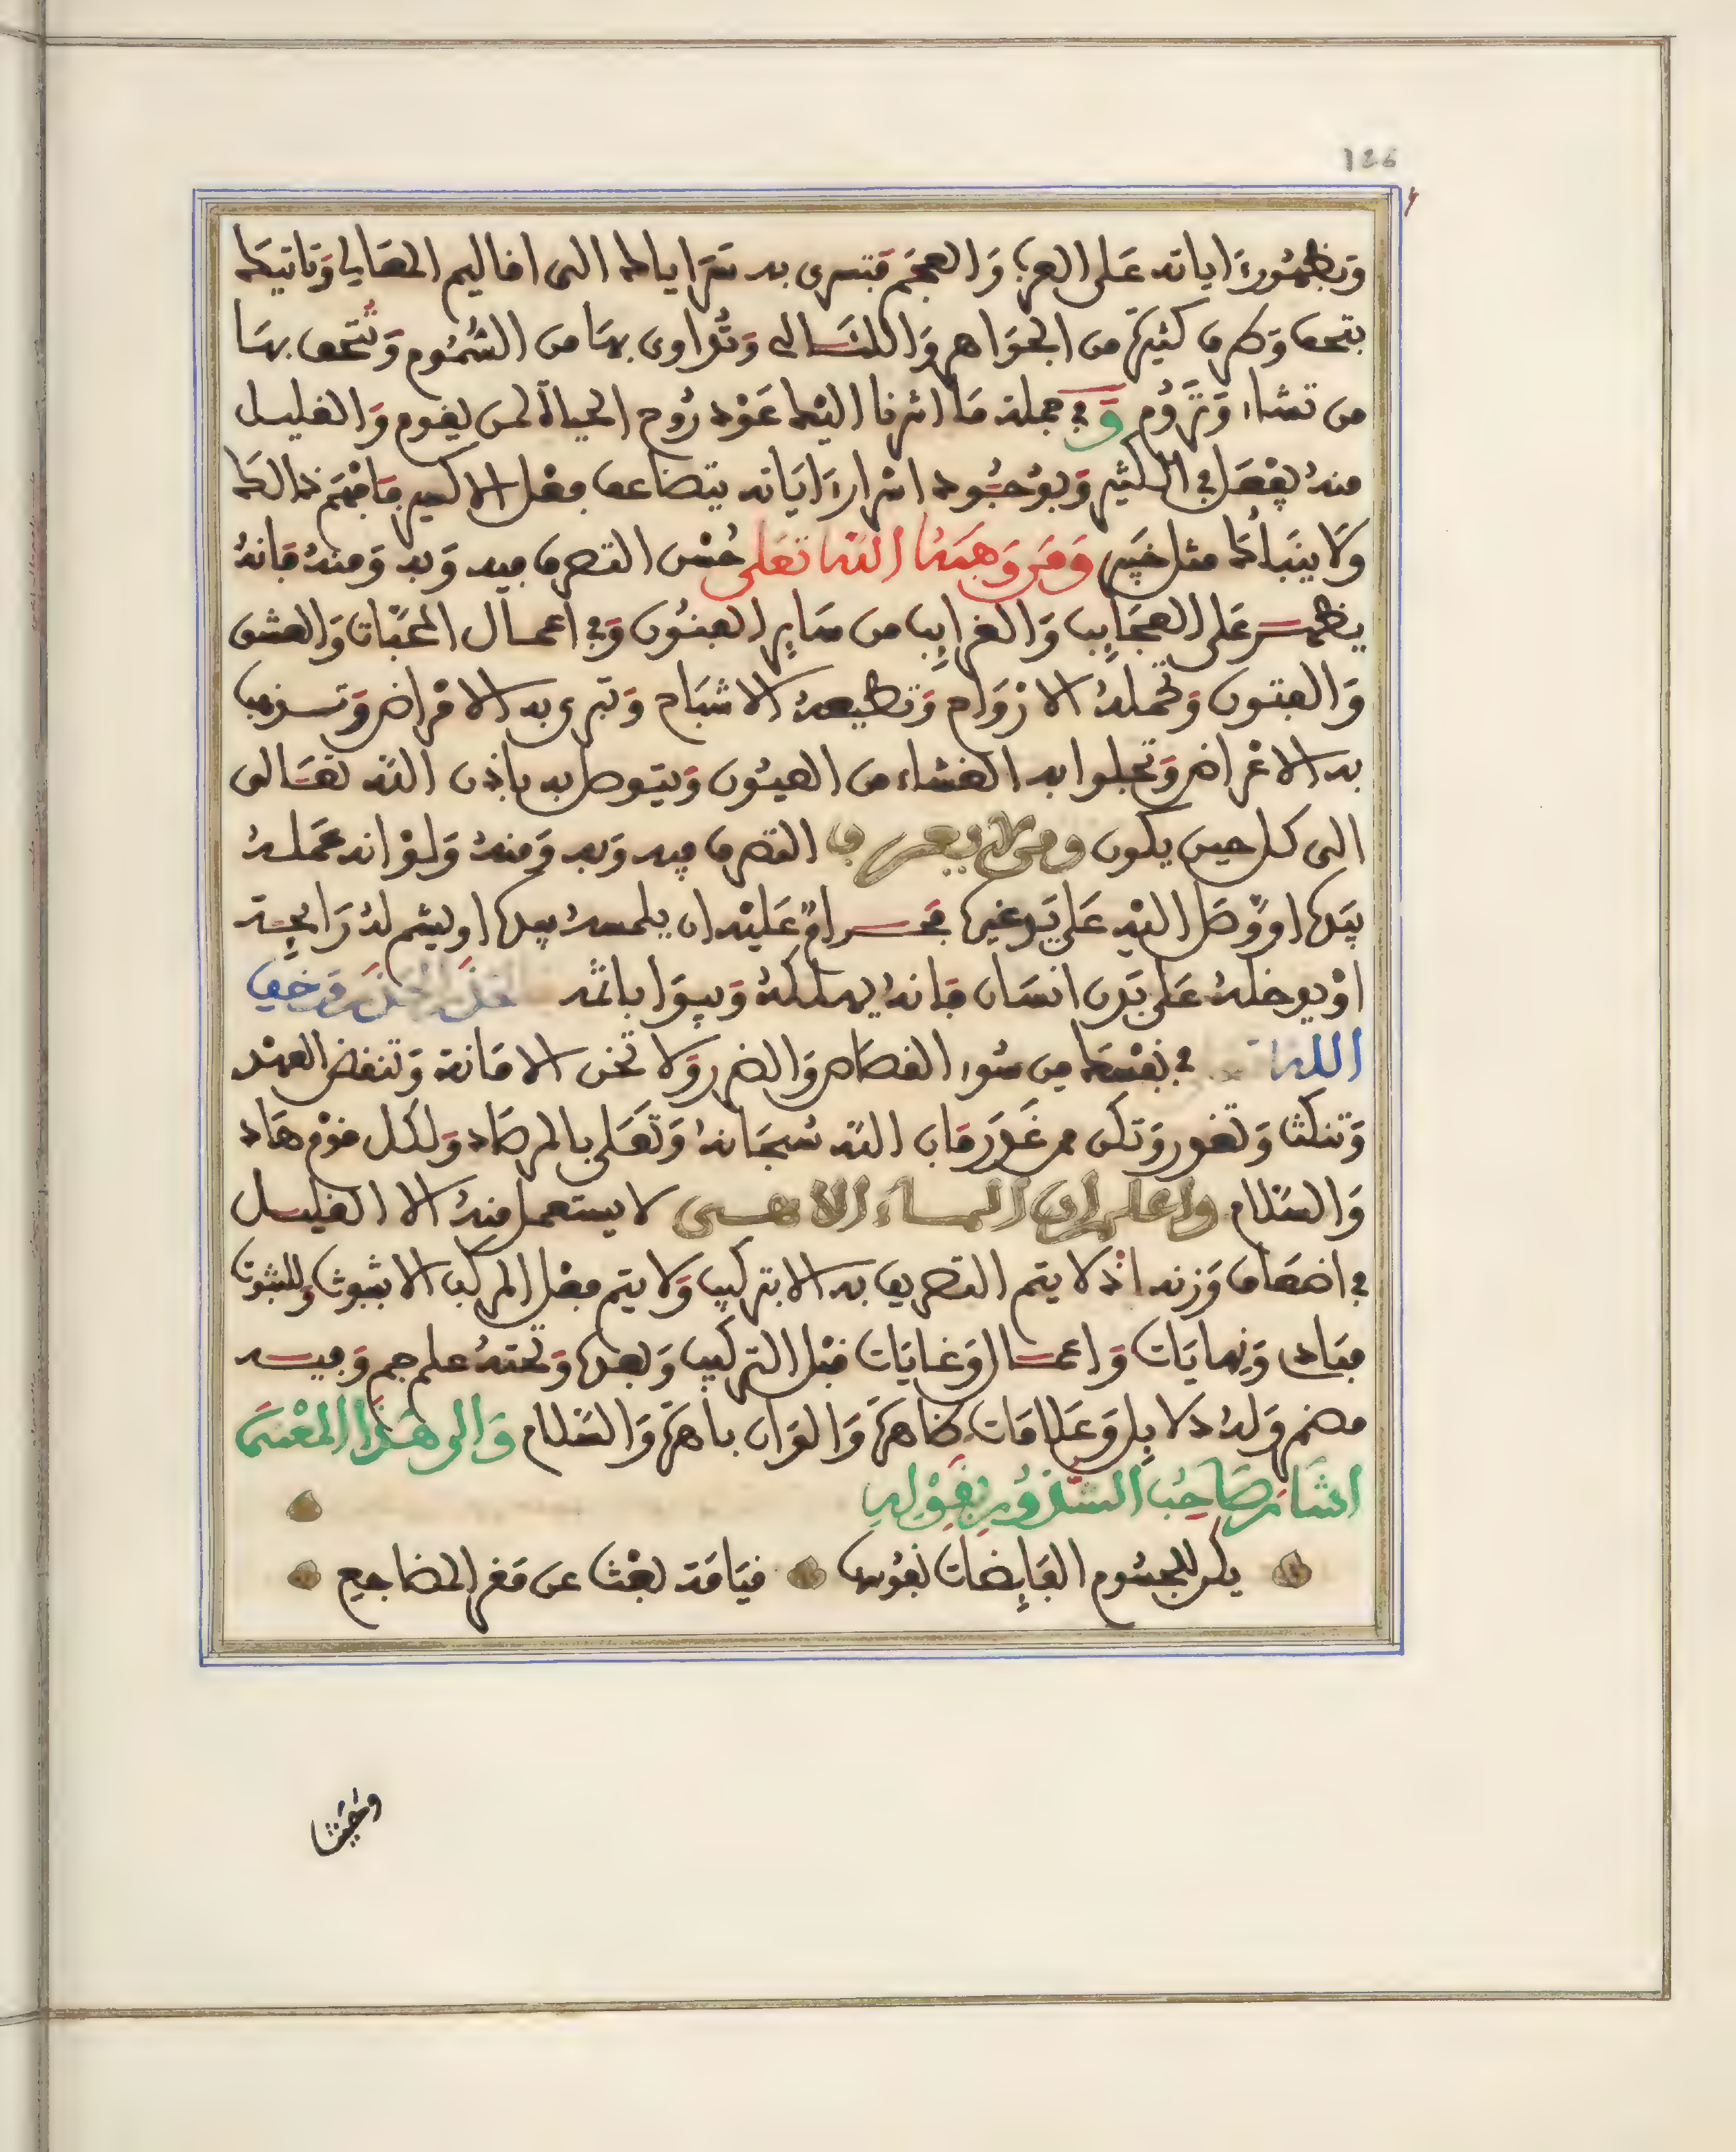 126
وَبظهُور ءاياته عَلى العرب وَالعجَم فتسرى به سَرَاياك الى افاليم العَالي وَتاتيك
بتحف وَطرف كثيرَة من الجوَاهر وَاللئَالى وَتُداوى بهَا من السُّمُوم وَتُتحف بهَا
من تشاء وَترُوم وَفي جملة مَا اشرنا اليْك عَوْد رُوح الحياة لمن يفوم وَالفليل
منهُ يفْعَل في الكثير وَبوُجُود اسْرار ءايَاته يتضاعف فعْل الاكسير فافهَم ذالك
وَلا ينبَّأك مثل خبير وَمَن وَهبَهُ اللهُ تعَلى حُسْن التصرف فيه وَبه وَمنهُ فانهُ
يظهر عَلى العجَايب وَالغرايب من سَاير الفنُون وَفي اعمال المحبّات وَالعشق
وَالفتون وَتحملهُ الارْوَاح وَتطيعهُ الاشبَاح وَتبرى به الامْراض وَتسـ
به الاغْراض وَتجلوا به الغشاء من العيُون وَيتوصل به باذن الله تعَالى
الى كل حين يكون ومن لا يعرف التصرف فيه وَبه وَمنهُ وَلوْ انه عَملهُ
بيَده او وَّصَل اليْه عَلى يَد غيره فحرامٌ عَليْه ان يلمسهُ بيده او يشم لهُ رَايحة
اوْ يدخلهُ عَلى بَدن انسَان فانهُ يهلكهُ وَيبوَا باثمه الحذَر الحذَر وَخف
اللهَ في نفسَك من سُوء الفصَاص وَالضرر وَلا تخن الامَانة وَتنفض العهْد
وَتنكث وَتغدر وَتكن ممن غدَر فان الله سُبحَانهُ وَتعَلى بالمرصَاد وَلكل فوْم هَاد
وَالسَّلام واعلم ان الماء الالاهى لا يستعمل منهُ الا الفليل
في اضعَاف وَزنه اذ لا يتم التصريف به الا بتركيب وَلا يتم فعْل المركب الا بثبوت وللثبوت
مبَاد وَنهايَات وَاعمال وَغايَات فبْل التركيب وَبعْده وَتحتهُ علم جم وَفيه
مضم وَلهُ دلايل وَعَلامَات ظاهرَة وَالوَان باهرَة وَالسَّلام وَالى هَذا المعْنى
اشَار صَاحِبُ الشذُورِ بفَوْلِهِ
يكر للجسُوم الفَايضات نفُوسها فيَامَة بعْث عن مَفر المضاجع
وحَيث